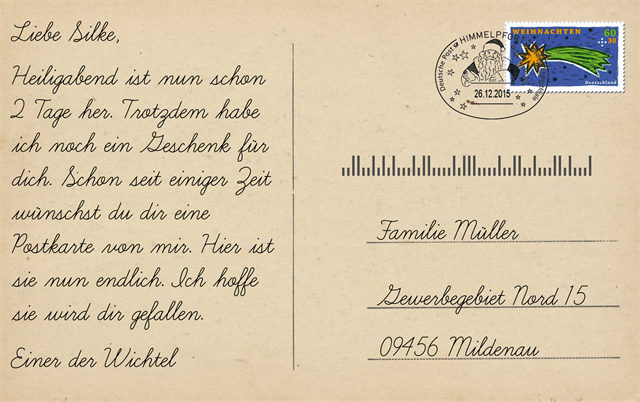 Liebe Silke,
Heiligabend ist nun schon
2 Tage her. Trotzdem habe
ich noch ein Geschenk für
dich. Schon seit einiger Zeit
wünschst du dir eine
Postkarte von mir. Hier ist
sie nun endlich. Ich hoffe
sie wird dir gefallen.
Einer der Wichtel
Deutsche Post
26.12.2015
WEIHNACHTEN
60
+30
Deutschland
Familie Müller
Gewerbegebiet Nord 15
09456 Mildenau